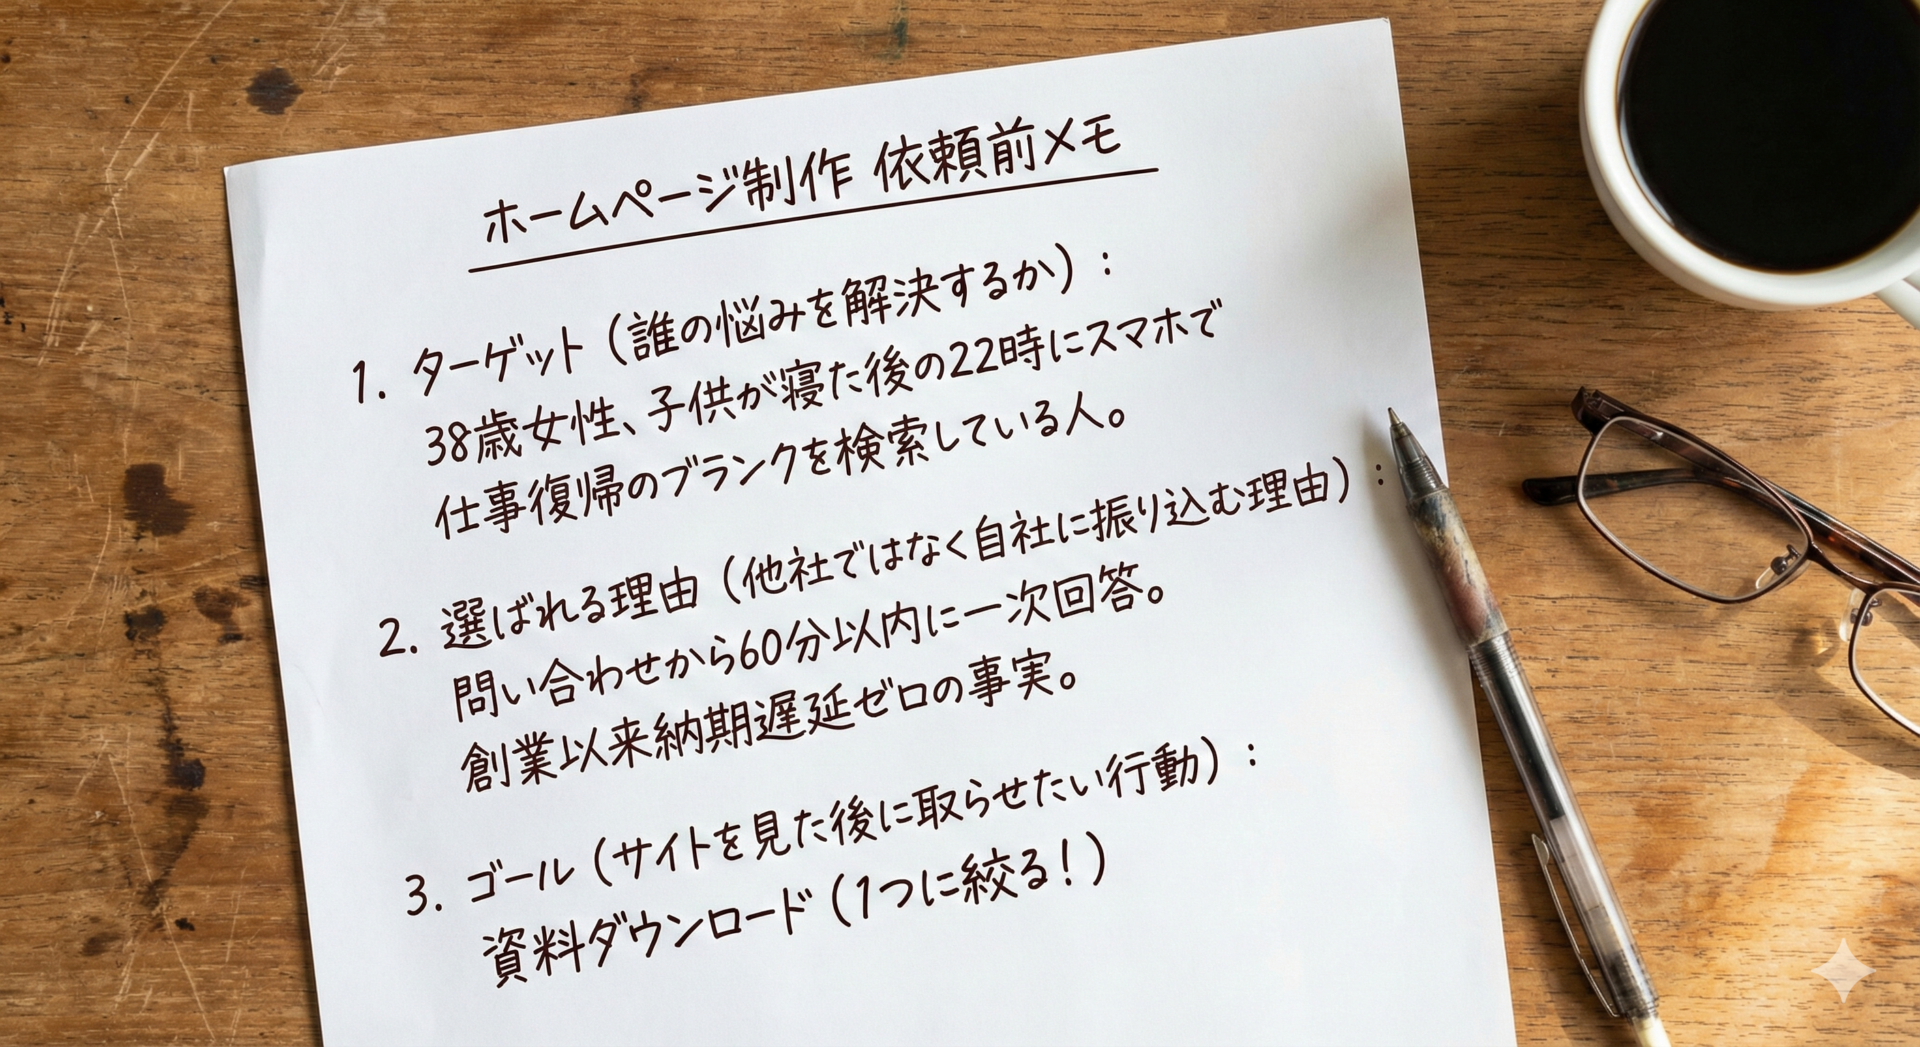 ホームページ制作 依頼前メモ
1. ターゲット（誰の悩みを解決するか）：
38歳女性、子供が寝た後の22時にスマホで
仕事復帰のブランクを検索している人。
2. 選ばれる理由（他社ではなく自社に振り込む理由）：
問い合わせから60分以内に一次回答。
創業以来納期遅延ゼロの事実。
3. ゴール（サイトを見た後に取らせたい行動）：
資料ダウンロード（1つに絞る！）